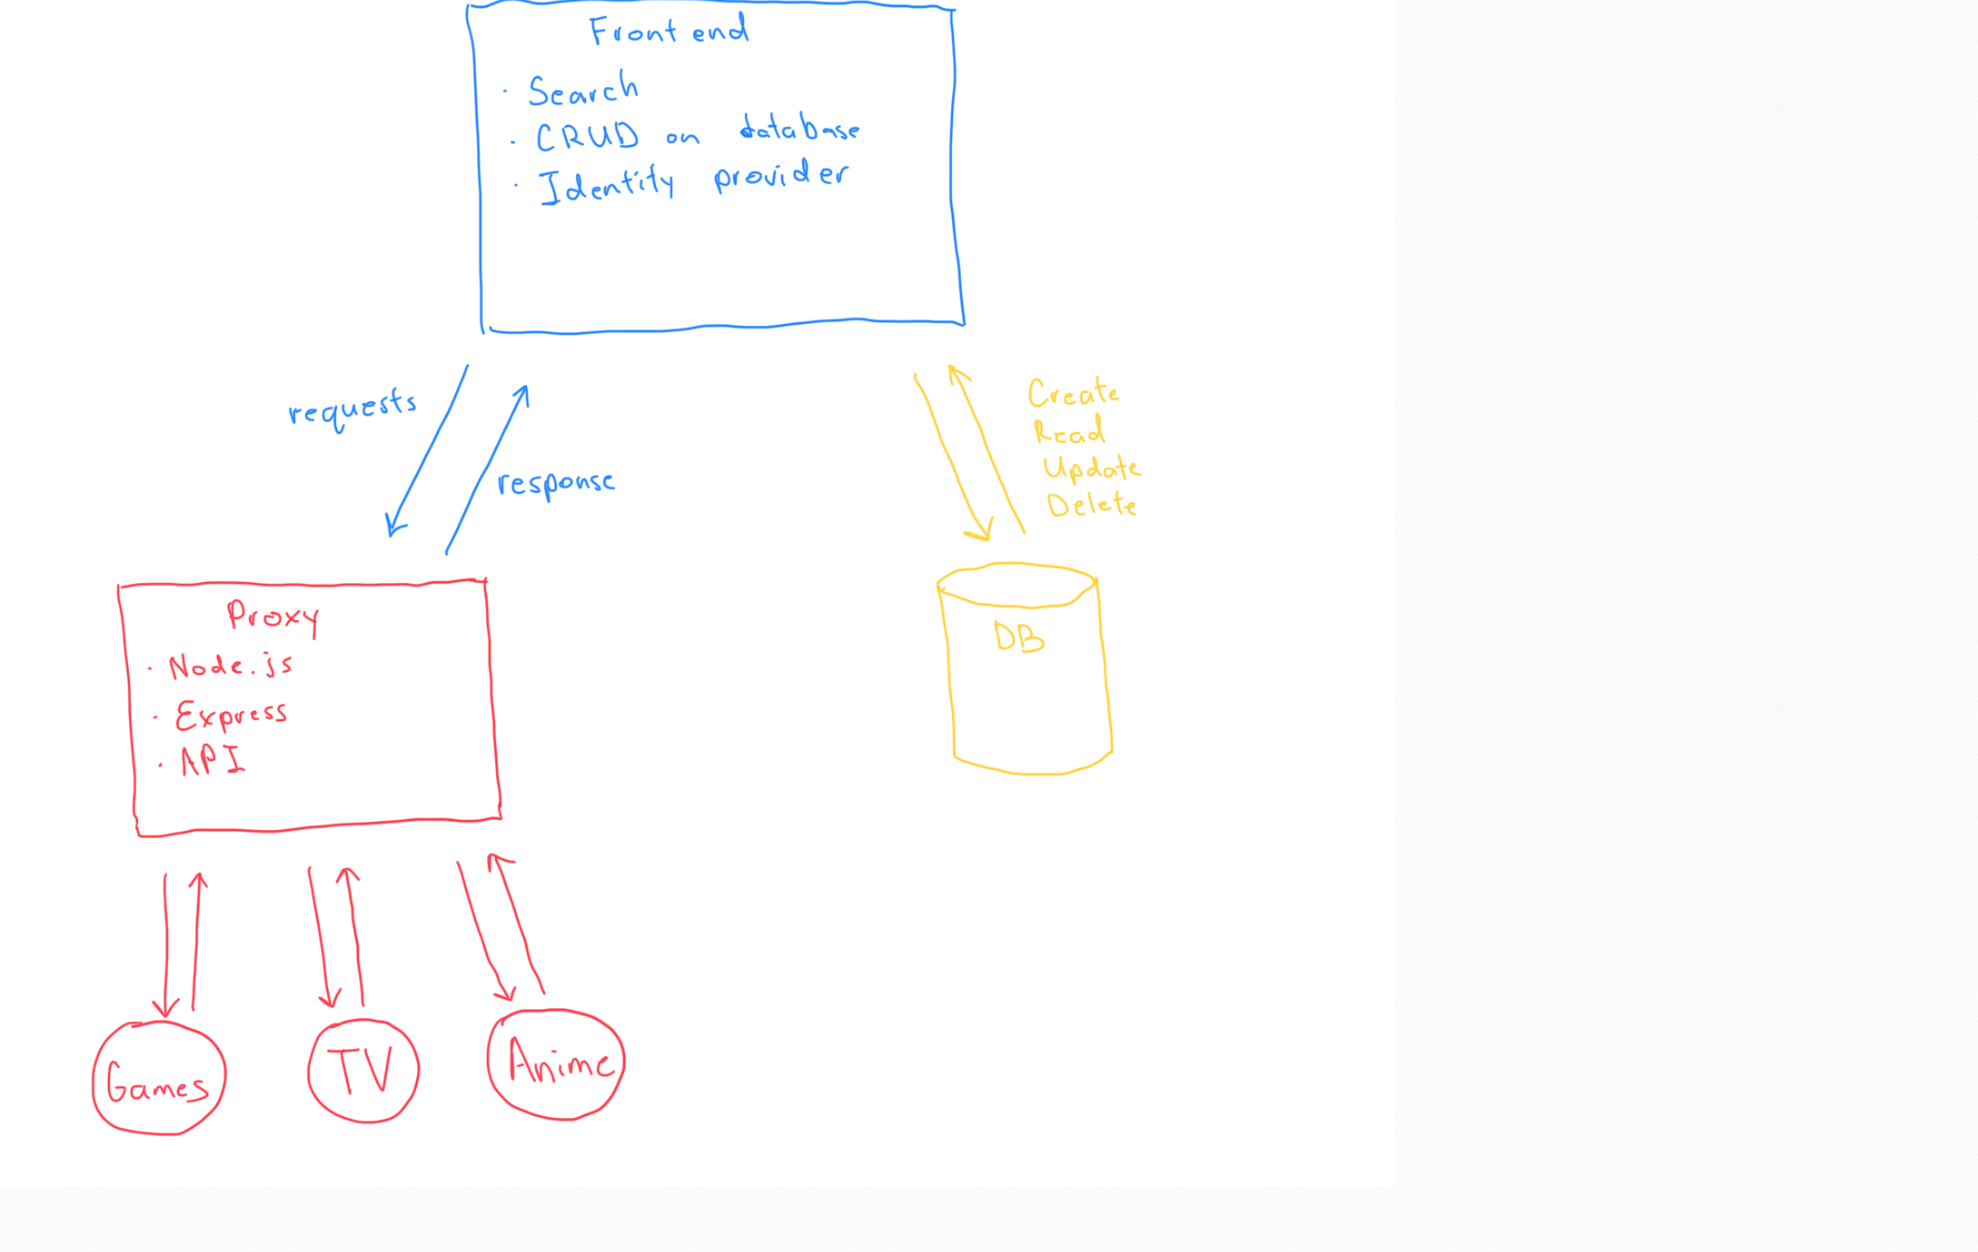 Front end
· Search
· CRUD on database
· Identity provider
requests
response
Create
Read
Update
Delete
Proxy
· Node.js
· Express
· API
DB
Games
TV
Anime